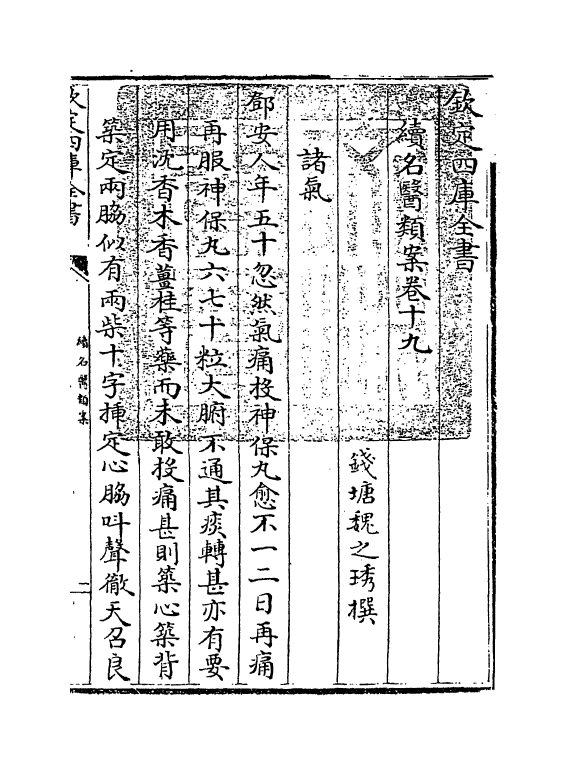 欽定四庫全書
續名醫類案卷十九
錢塘魏之琇撰
諸氣
鄧安人年五十忽然氣痛投神保丸愈不一二日再痛
再服神保丸六七十粒大腑不通其痰轉甚亦有要
用沉香木香薑桂等藥而未敢投痛甚則築心築背
築定兩脇似有兩柴十字揷定心脇叫聲徹天召良
欽定四庫全書
續名醫類案
一